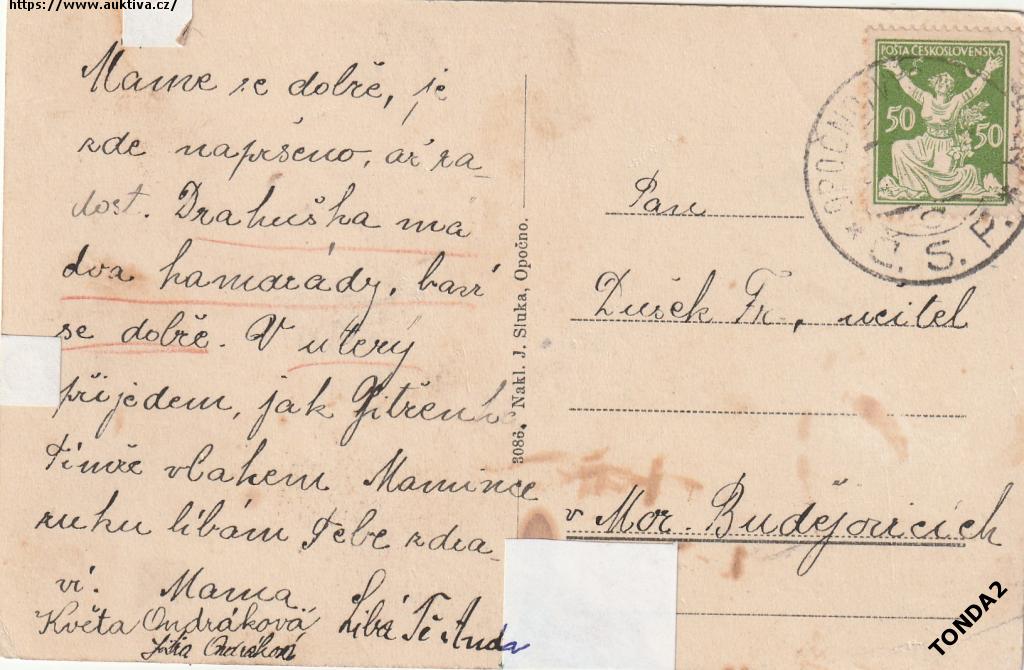 https://www.auktiva.cz/
Mame se dobře, je
zde napršeno, až ra-
dost. Drahuška má
dva kamarády, baví
se dobře. V úterý
přijedem, jak Jitřenka
vlakem Mamince
ruku líbám Tebe zdra-
ví. Mama
Květa Ondráková
Líbá Tě Anda
3086. Nakl. J. Sluka, Opočno.
POŠTA ČESKOSLOVENSKÁ
50 50
OPOČNO
Č. S. P.
Pan
Dušek Fr., učitel
v Mor. Budějovicích
TONDA2